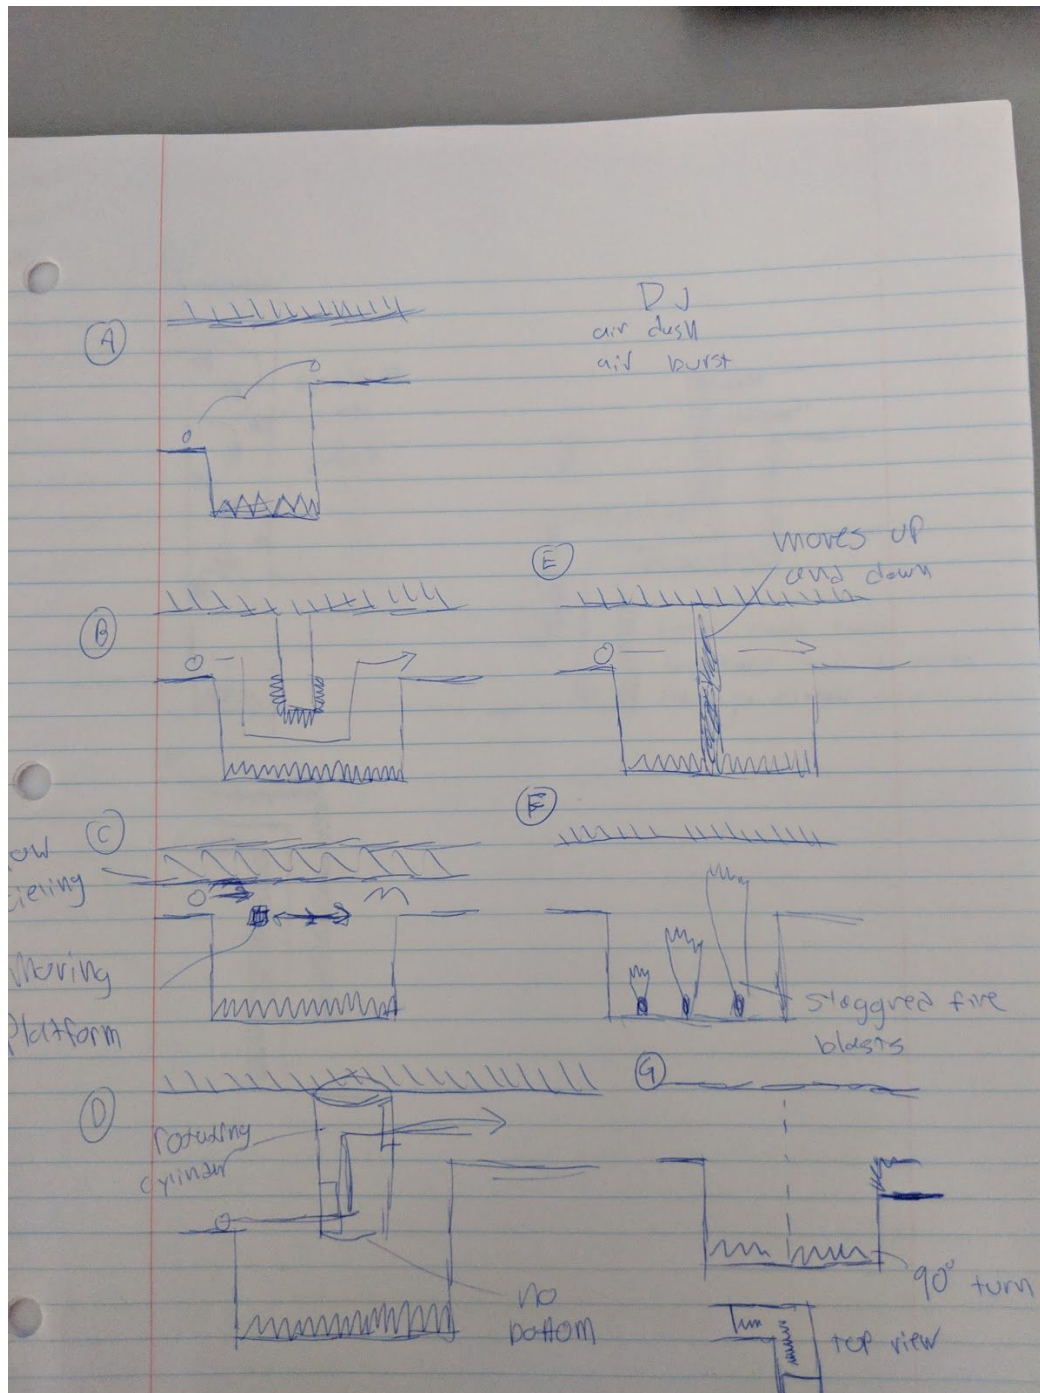 DJ
air dash
air burst
A
E
moves up
and down
B
C
F
ow
cieling
Moving
Platform
staggred fire
blasts
D
G
rotating
cylinder
no
bottom
90° turn
top view